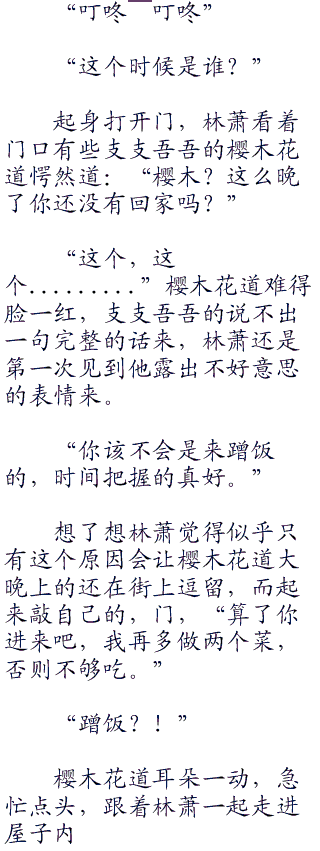 “叮咚——叮咚”
“这个时候是谁？”
起身打开门，林萧看着
门口有些支支吾吾的樱木花
道愕然道：“樱木？这么晚
了你还没有回家吗？”
“这个，这
个.........”樱木花道难得
脸一红，支支吾吾的说不出
一句完整的话来，林萧还是
第一次见到他露出不好意思
的表情来。
“你该不会是来蹭饭
的，时间把握的真好。”
想了想林萧觉得似乎只
有这个原因会让樱木花道大
晚上的还在街上逗留，而起
来敲自己的，门，“算了你
进来吧，我再多做两个菜，
否则不够吃。”
“蹭饭？！”
樱木花道耳朵一动，急
忙点头，跟着林萧一起走进
屋子内